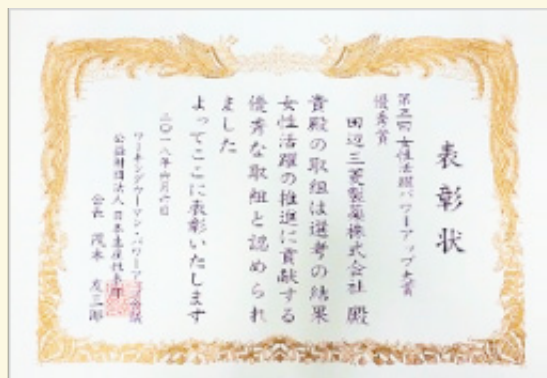 表彰状
第五回 女性活躍パワーアップ大賞
優秀賞
田辺三菱製薬株式会社 殿
貴殿の取組は選考の結果
女性活躍の推進に貢献する
優秀な取組と認められ
ました
よってここに表彰いたします
二〇一八年 月 日
ワーキングウーマン・パワーアップ会議
公益財団法人 日本生産性本部
会長 茂木 友三郎